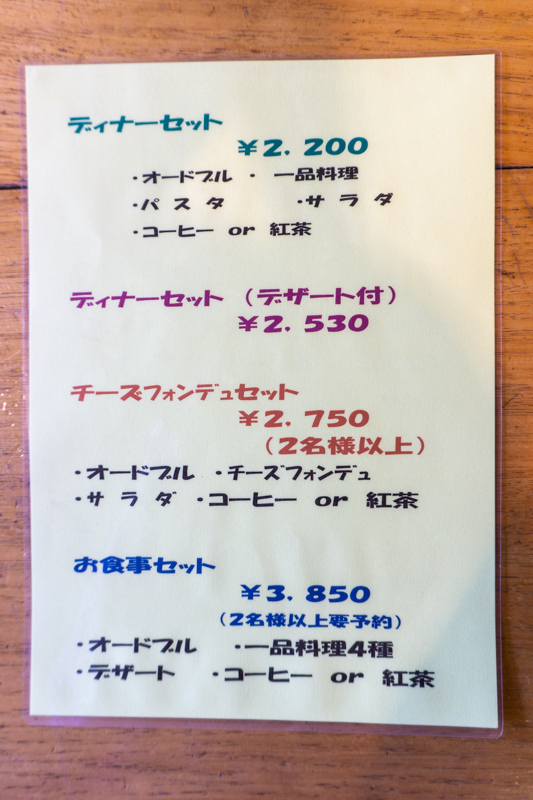 ディナーセット
￥2．200
・オードブル ・ 一品料理
・パスタ ・サラダ
・コーヒー or 紅茶
ディナーセット （デザート付）
￥2．530
チーズフォンデュセット
￥2．750
（2名様以上）
・オードブル ・チーズフォンデュ
・サラダ ・コーヒー or 紅茶
お食事セット
￥3．850
（2名様以上要予約）
・オードブル ・一品料理4種
・デザート ・コーヒー or 紅茶